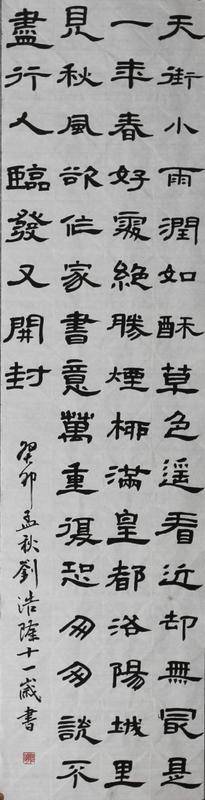 天街小雨潤如酥草色遥看近却無最是
一年春好處絕勝煙柳滿皇都洛陽城里
見秋風欲作家書意萬重復恐匆匆說不
盡行人臨發又開封
癸卯孟秋劉浩隆十一歲書